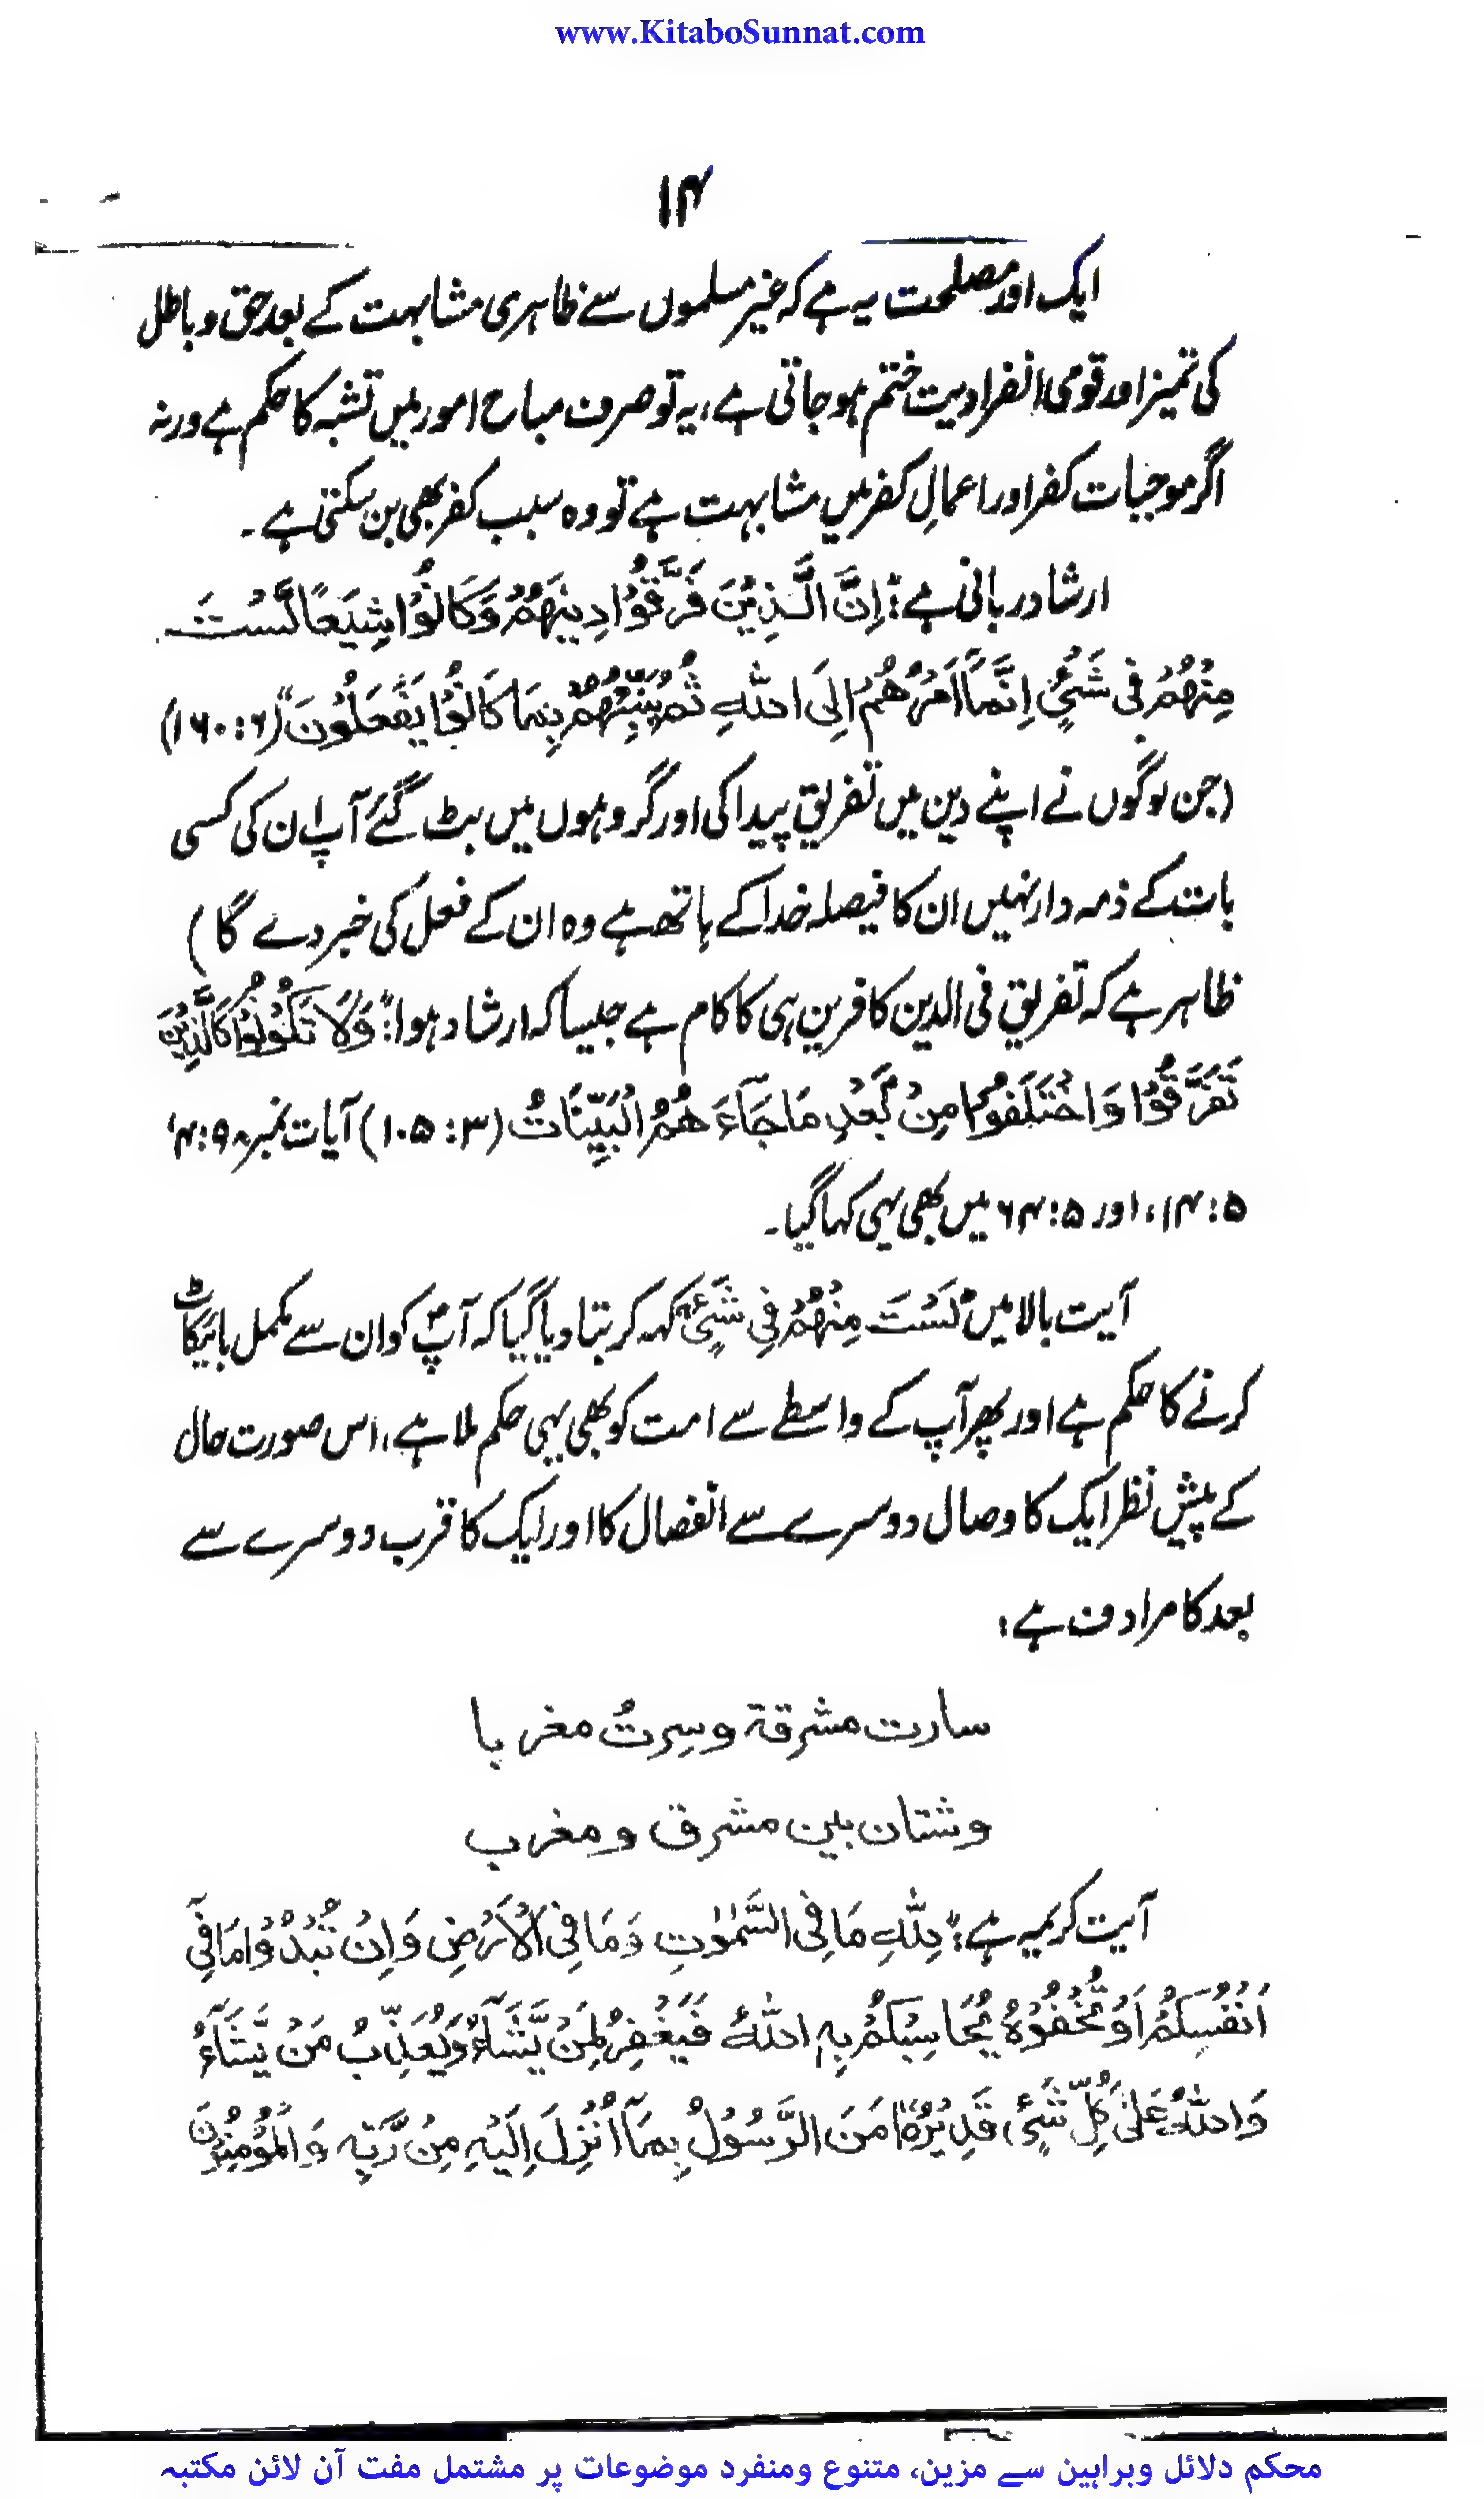 www.KitaboSunnat.com
۱۴
ایک اور مصلحت یہ ہے کہ غیر مسلموں سے ظاہری مشابہت کے بعد حق و باطل
کی تمیز اور قومی انفرادیت ختم ہو جاتی ہے، یہ تو صرف مباح امور میں تشبہ کا حکم ہے ورنہ
اگر موجبات کفر اور اعمالِ کفر میں مشابہت ہے تو وہ سبب کفر بھی بن سکتی ہے۔
ارشاد ربانی ہے: اِنَّ الَّذِیْنَ فَرَّقُوْا دِیْنَهُمْ وَکَانُوْا شِیَعًا لَّسْتَ
مِنْهُمْ فِی شَیْءٍ اِنَّمَا اَمْرُهُمْ اِلَی اللّٰهِ ثُمَّ یُنَبِّئُهُمْ بِمَا کَانُوْا یَفْعَلُوْنَ" (۶:۱۶۰)
(جن لوگوں نے اپنے دین میں تفریق پیدا کی اور گروہوں میں بٹ گئے آپ ان کی کسی
بات کے ذمہ دار نہیں ان کا فیصلہ خدا کے ہاتھ ہے وہ ان کے فعل کی خبر دے گا)
ظاہر ہے کہ تفریق فی الدین کافرین ہی کا کام ہے جیسا کہ ارشاد ہوا: "وَلَا تَکُوْنُوْا کَالَّذِیْنَ
تَفَرَّقُوْا وَاخْتَلَفُوْا مِنْ بَعْدِ مَا جَآءَ هُمُ الْبَیِّنَاتُ (۳:۱۰۵) آیات نمبر ۹۸:۴،
۵:۱۴، اور ۵:۶۴ میں بھی یہی کہا گیا۔
آیت بالا میں "لَسْتَ مِنْهُمْ فِی شَیْءٍ" کہہ کر بتا دیا گیا کہ آپؐ کو ان سے مکمل بائیکاٹ
کرنے کا حکم ہے اور پھر آپ کے واسطے سے امت کو بھی یہی حکم ملا ہے، اس صورت حال
کے پیش نظر ایک کا وصال دوسرے سے انفصال کا اور ایک کا قرب دوسرے سے
بعد کا مرادف ہے:
سارت مشرقة وسِرتُ مغربا
وشتان بین مشرق ومغرب
آیت کریمہ ہے: "لِلّٰهِ مَا فِی السَّمٰوٰتِ وَمَا فِی الْاَرْضِ وَاِنْ تُبْدُوْا مَا فِیْ
اَنْفُسِکُمْ اَوْ تُخْفُوْهُ یُحَاسِبْکُمْ بِهِ اللّٰهُ فَیَغْفِرُ لِمَنْ یَّشَآءُ وَیُعَذِّبُ مَنْ یَّشَآءُ
وَاللّٰهُ عَلٰی کُلِّ شَیْءٍ قَدِیْرٌ ہ اٰمَنَ الرَّسُوْلُ بِمَا اُنْزِلَ اِلَیْهِ مِنْ رَّبِّهٖ وَالْمُؤْمِنُوْنَ
محکم دلائل وبراہین سے مزین، متنوع ومنفرد موضوعات پر مشتمل مفت آن لائن مکتبہ